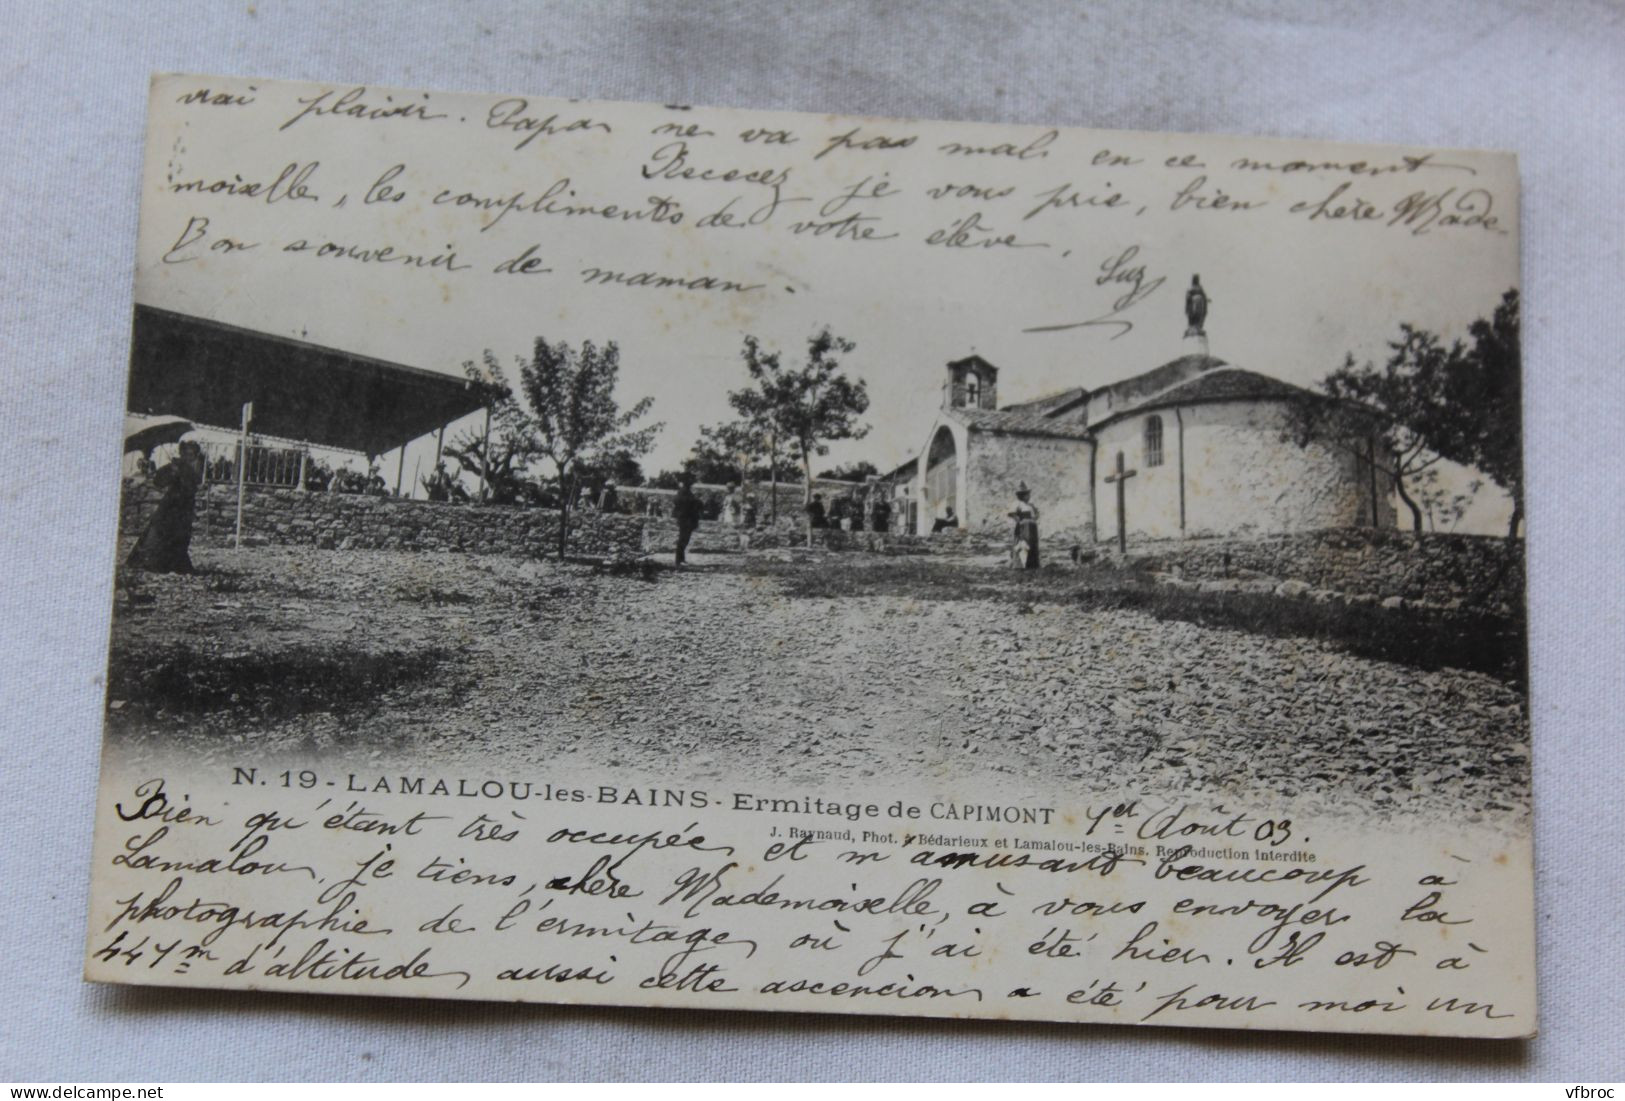 vrai plaisir. Papa ne va pas mal en ce moment
Recevez je vous prie, bien chère Made-
moiselle, les compliments de votre élève.
Bon souvenir de maman.
Suz
N. 19 - LAMALOU-les-BAINS - Ermitage de CAPIMONT
J. Raynaud, Phot. à Bédarieux et Lamalou-les-Bains. Reproduction interdite
Août 03.
Bien qu'étant très occupée et m'amusant beaucoup à
Lamalou, je tiens, chère Mademoiselle, à vous envoyer la
photographie de l'ermitage où j'ai été hier. Il est à
447 m d'altitude, aussi cette ascencion a été pour moi un
vfbroc